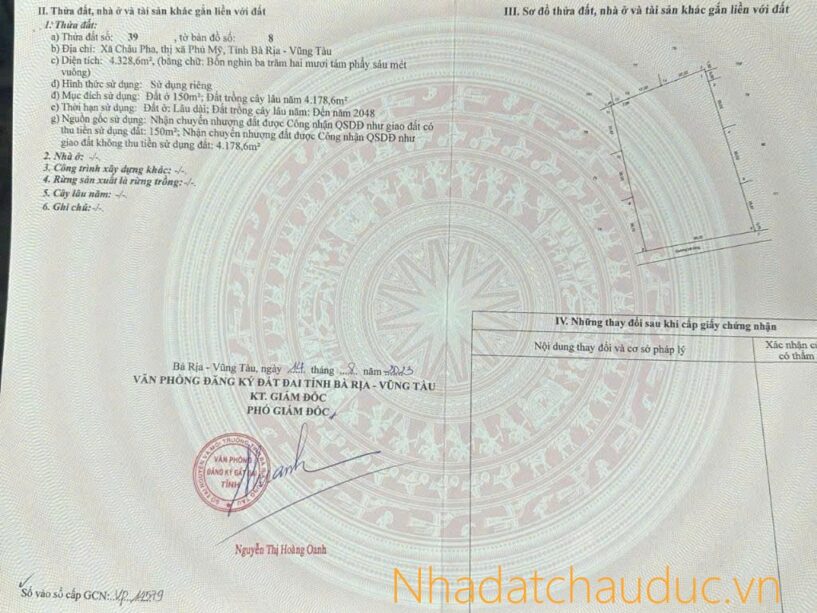 II. Thửa đất, nhà ở và tài sản khác gắn liền với đất
1. Thửa đất:
a) Thửa đất số: 39 , tờ bản đồ số: 8
b) Địa chỉ: Xã Châu Pha, thị xã Phú Mỹ, Tỉnh Bà Rịa - Vũng Tàu
c) Diện tích: 4.328,6m², (bằng chữ: Bốn nghìn ba trăm hai mươi tám phẩy sáu mét
vuông)
d) Hình thức sử dụng: Sử dụng riêng
đ) Mục đích sử dụng: Đất ở 150m²; Đất trồng cây lâu năm 4.178,6m²
e) Thời hạn sử dụng: Đất ở: Lâu dài; Đất trồng cây lâu năm: Đến năm 2048
g) Nguồn gốc sử dụng: Nhận chuyển nhượng đất được Công nhận QSDĐ như giao đất có
thu tiền sử dụng đất: 150m²; Nhận chuyển nhượng đất được Công nhận QSDĐ như
giao đất không thu tiền sử dụng đất: 4.178,6m²
2. Nhà ở: -/-.
3. Công trình xây dựng khác: -/-.
4. Rừng sản xuất là rừng trồng: -/-.
5. Cây lâu năm: -/-.
6. Ghi chú: -/-.
III. Sơ đồ thửa đất, nhà ở và tài sản khác gắn liền với đất
IV. Những thay đổi sau khi cấp giấy chứng nhận
Nội dung thay đổi và cơ sở pháp lý
Xác nhận
có thẩm
Bà Rịa - Vũng Tàu, ngày 14 tháng 8 năm 2023
VĂN PHÒNG ĐĂNG KÝ ĐẤT ĐAI TỈNH BÀ RỊA - VŨNG TÀU
KT. GIÁM ĐỐC
PHÓ GIÁM ĐỐC
VĂN PHÒNG
ĐĂNG KÝ ĐẤT ĐAI
TỈNH
Nguyễn Thị Hoàng Oanh
Số vào sổ cấp GCN: VP 12579
Nhadatchauduc.vn